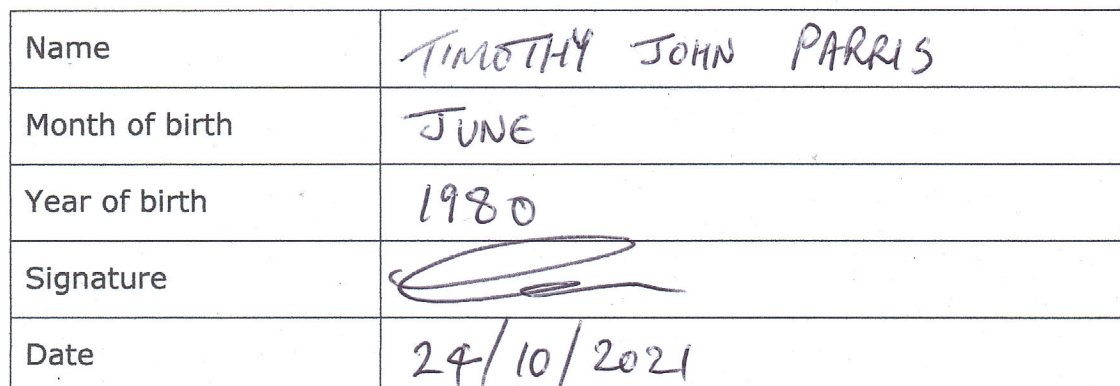 Name TIMOTHY JOHN PARRIS
Month of birth JUNE
Year of birth 1980
Signature
Date 24/10/2021